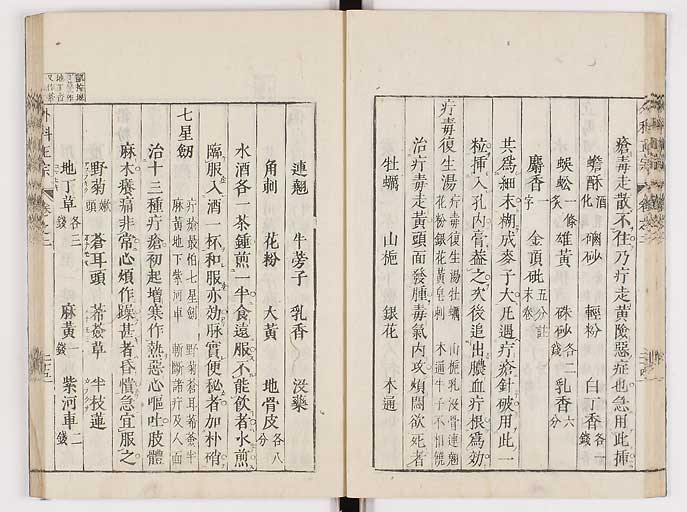 瘡毒走散不住乃疔走黃險惡症也急用此揷
蟾酥 酒化 硇砂 輕粉 白丁香 各一錢
蜈蚣 一條炙 雄黃 硃砂 各二錢 乳香 六分
麝香 一字 金頂砒 五分註末卷
共爲細末糊成麥子大凡遇疔瘡針破用此一
粒揷入孔内膏蓋之次後追出膿血疔根爲効
疔毒復生湯 疔毒復生湯牡蠣 山梔乳沒骨連翹
花粉銀花黃皂刺 木通牛子不相饒
治疔毒走黃頭面發腫毒氣内攻煩悶欲死者
牡蠣 山梔 銀花 木通
連翹 牛蒡子 乳香 沒藥
角刺 花粉 大黃 地骨皮 各八分
水酒各一茶鍾煎一半食遠服不能飮者水煎
臨服入酒一杯和服亦効脉實便秘者加朴硝
七星劒 疔瘡最怕七星劒 野菊蒼耳豨薟半
麻黃地丁紫河車 斬斷諸疔及人面
治十三種疔瘡初起增寒作熱惡心嘔吐肢體
麻木癢痛非常心煩作躁甚者昏憒急宜服之
野菊 嫩頭 蒼耳頭 豨薟草 半枝蓮
地丁草 各三錢 麻黃 一錢 紫河車 二錢
外科正宗 卷之二